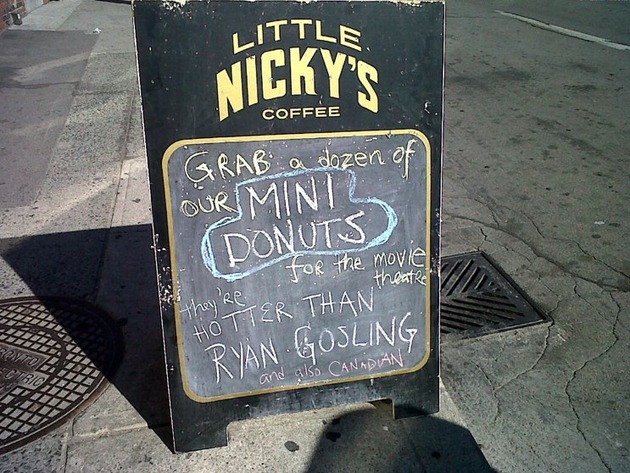 LITTLE
NICKY'S
COFFEE
GRAB a dozen of
OUR MINI
DONUTS
for the movie
theatre
they're
HOTTER THAN
RYAN GOSLING
and also CANADIAN